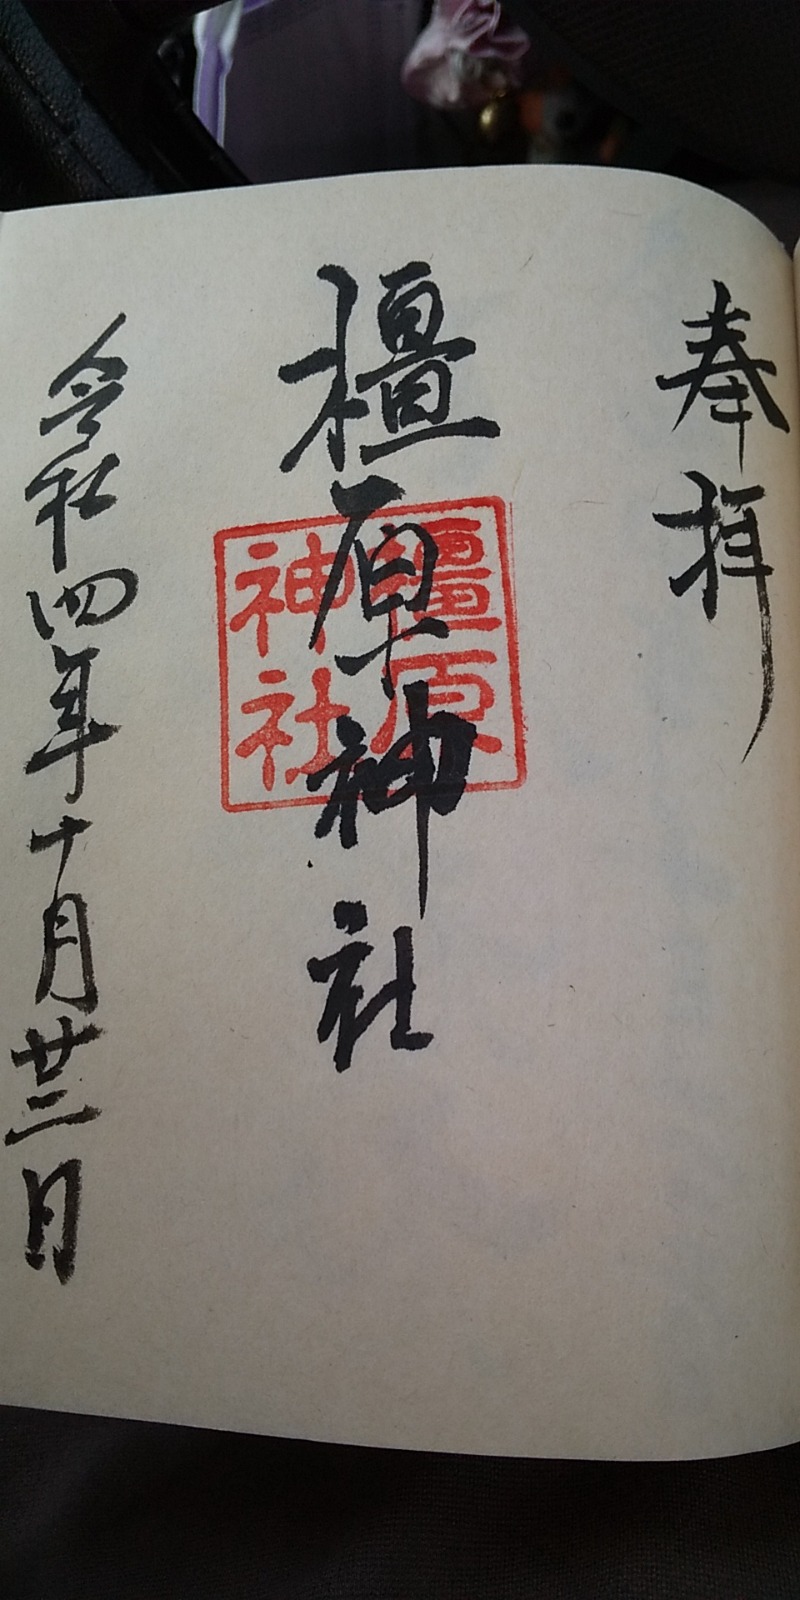 奉拝
橿原神社
橿原
神社
令和四年十月廿二日